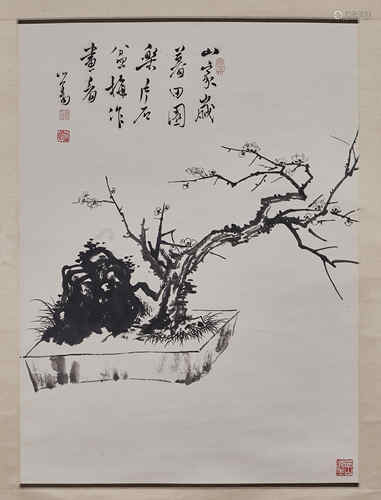 山家歲
暮田園
樂片石
盆梅作
畫看
心畬